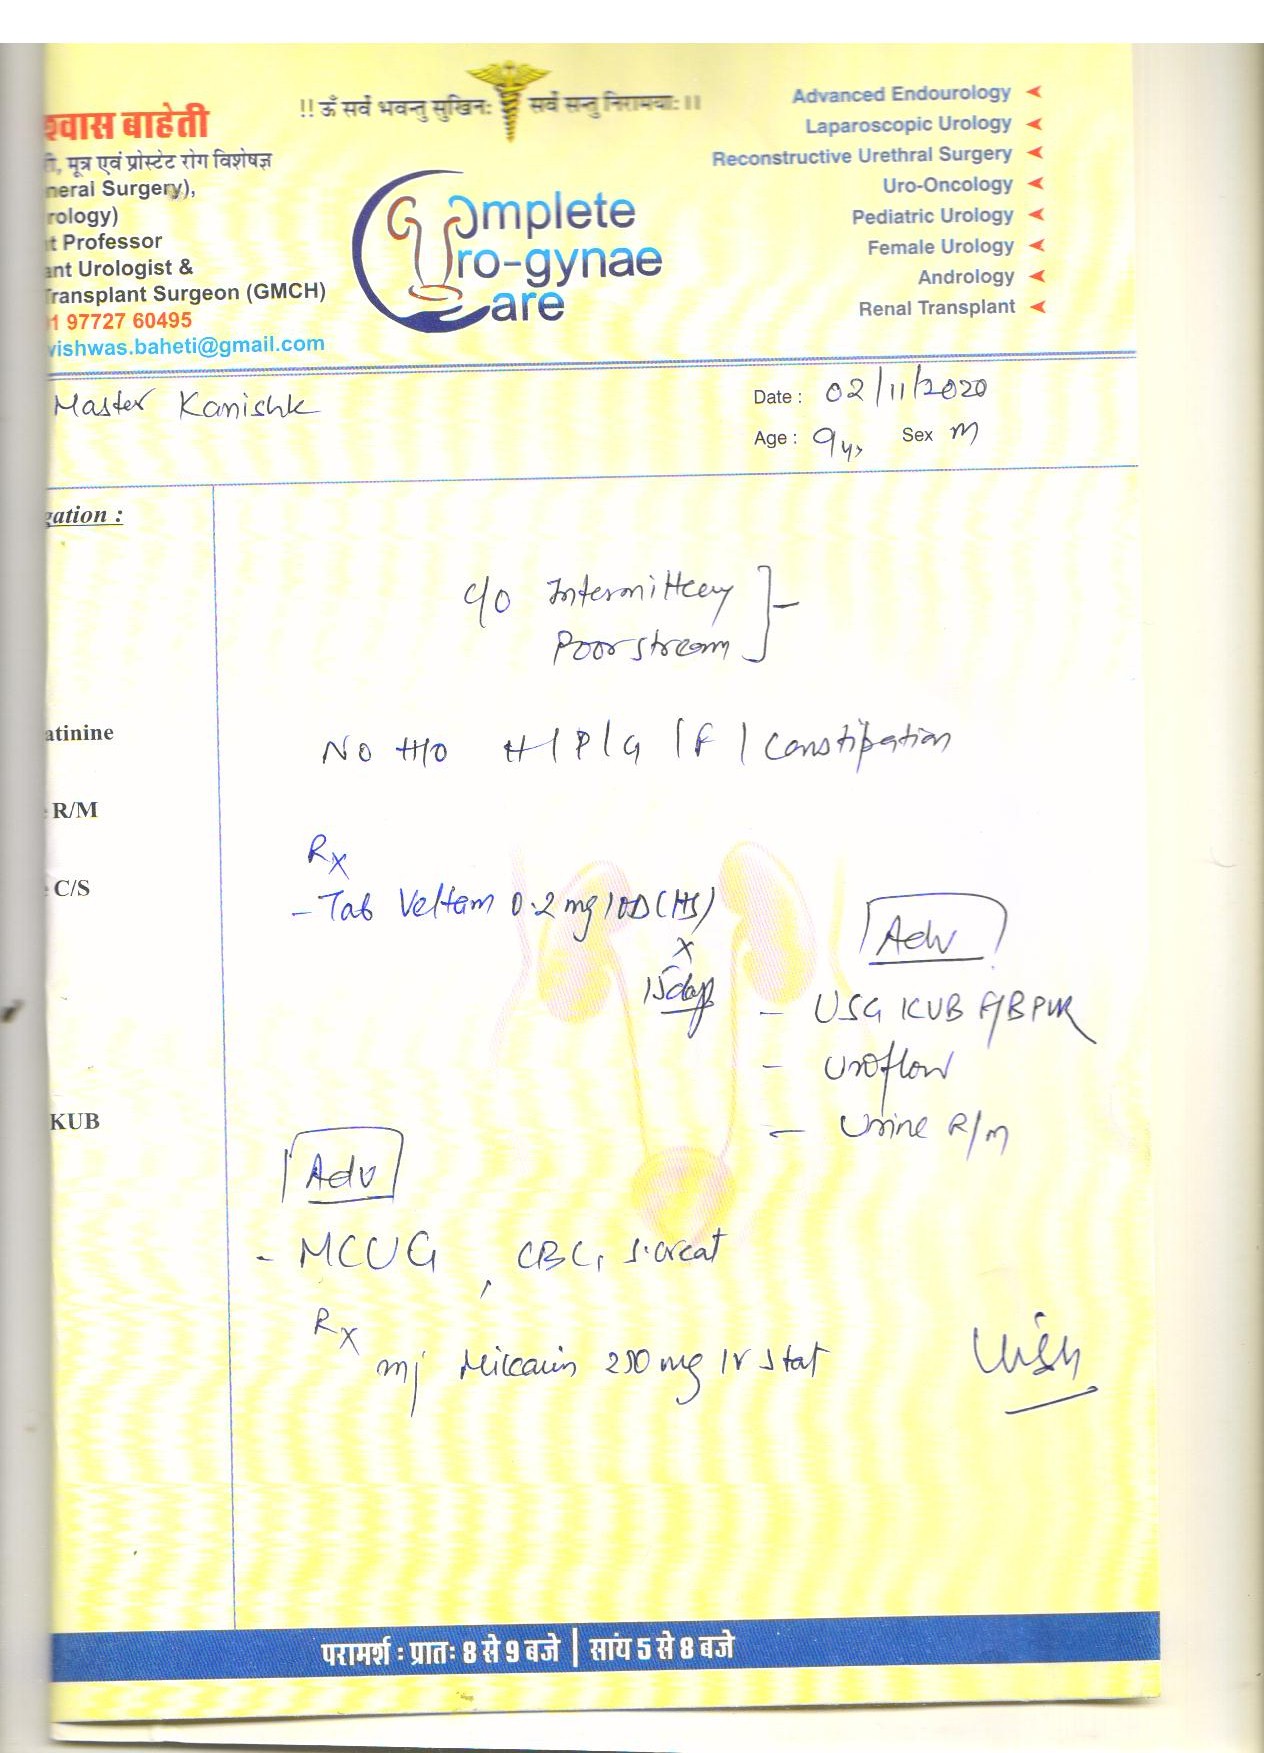 !! ॐ सर्वे भवन्तु सुखिनः सर्वे सन्तु निरामयाः ।।
श्वास बाहेती
ी, मूत्र एवं प्रोस्टेट रोग विशेषज्ञ
neral Surgery),
rology)
t Professor
ant Urologist &
Transplant Surgeon (GMCH)
1 97727 60495
vishwas.baheti@gmail.com
Complete
Uro-gynae
Care
Advanced Endourology
Laparoscopic Urology
Reconstructive Urethral Surgery
Uro-Oncology
Pediatric Urology
Female Urology
Andrology
Renal Transplant
Master Kanishk
Date : 02/11/2020
Age : 9 yr Sex M
gation :
c/o Intermittency
Poor stream
atinine
No H/o H/P/G/F/Constipation
R/M
Rx
C/S
- Tab Veltam 0.2 mg 1OD (HS)
x
15 days
Adv
- USG KUB F/B PVR
- Uroflow
KUB
- Urine R/M
Adv
- MCUG, CBC, S.creat
Rx
Inj 250 mg IV stat
Vish
परामर्श : प्रातः 8 से 9 बजे | सांय 5 से 8 बजे